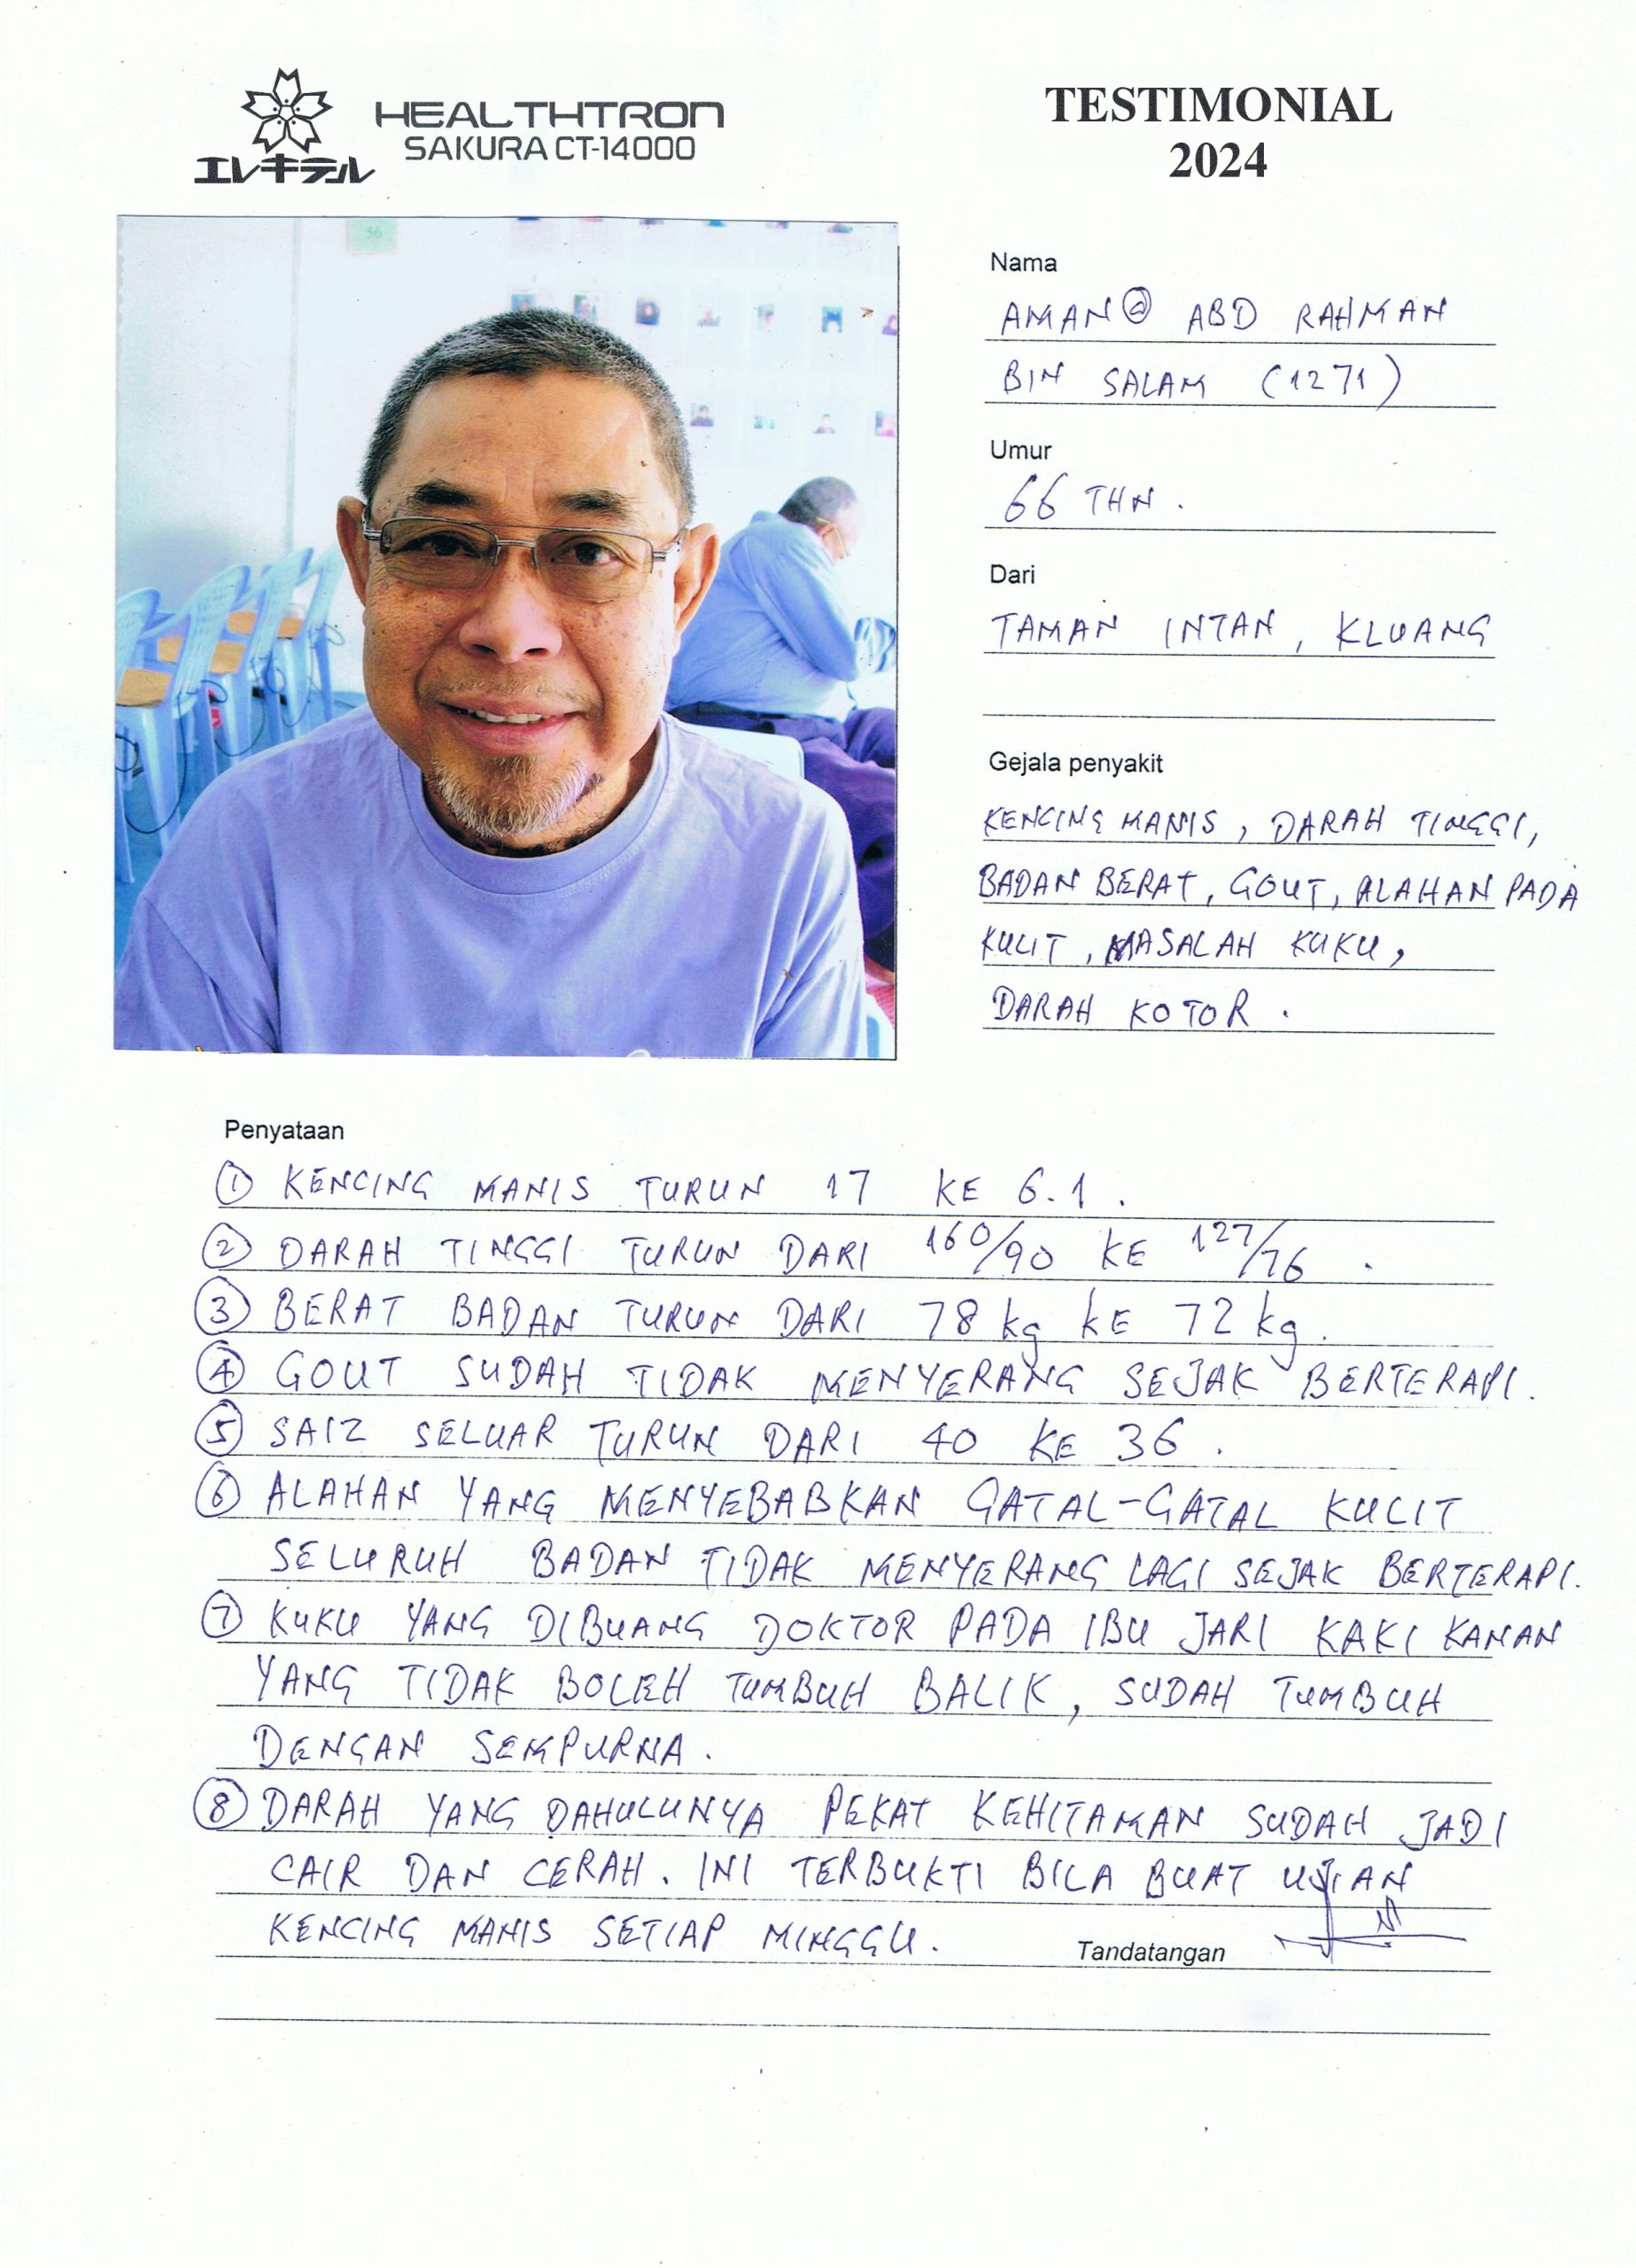 HEALTHTRON
SAKURA CT-14000
エレキテル
TESTIMONIAL
2024
56
Nama
AMAN @ ABD RAHMAN
BIN SALAM (1271)
Umur
66 THN.
Dari
TAMAN INTAN, KLUANG
Gejala penyakit
KENCING MANIS, DARAH TINGGI,
BADAN BERAT, GOUT, ALAHAN PADA
KULIT, MASALAH KUKU,
DARAH KOTOR.
Penyataan
① KENCING MANIS TURUN 17 KE 6.1.
② DARAH TINGGI TURUN DARI 160/90 KE 127/76.
③ BERAT BADAN TURUN DARI 78 kg KE 72 kg.
④ GOUT SUDAH TIDAK MENYERANG SEJAK BERTERAPI.
⑤ SAIZ SELUAR TURUN DARI 40 KE 36.
⑥ ALAHAN YANG MENYEBABKAN GATAL-GATAL KULIT
SELURUH BADAN TIDAK MENYERANG LAGI SEJAK BERTERAPI.
⑦ KUKU YANG DIBUANG DOKTOR PADA IBU JARI KAKI KANAN
YANG TIDAK BOLEH TUMBUH BALIK, SUDAH TUMBUH
DENGAN SEMPURNA.
⑧ DARAH YANG DAHULUNYA PEKAT KEHITAMAN SUDAH JADI
CAIR DAN CERAH. INI TERBUKTI BILA BUAT UJIAN
KENCING MANIS SETIAP MINGGU.
Tandatangan